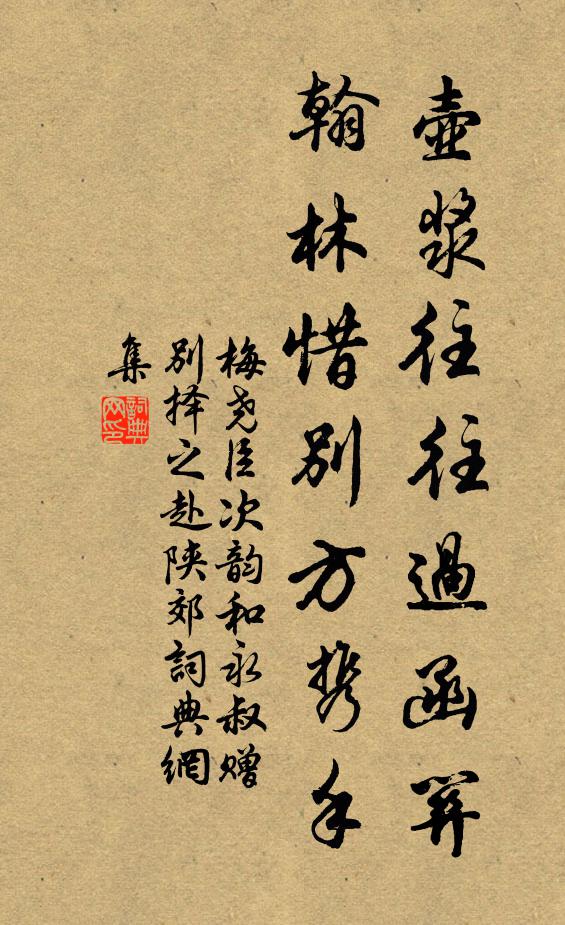 壺漿往往過函關
翰林惜别方携手
梅尧臣次韵和永叔赠
别择之赴陕郊詞典網
集
詞典网印